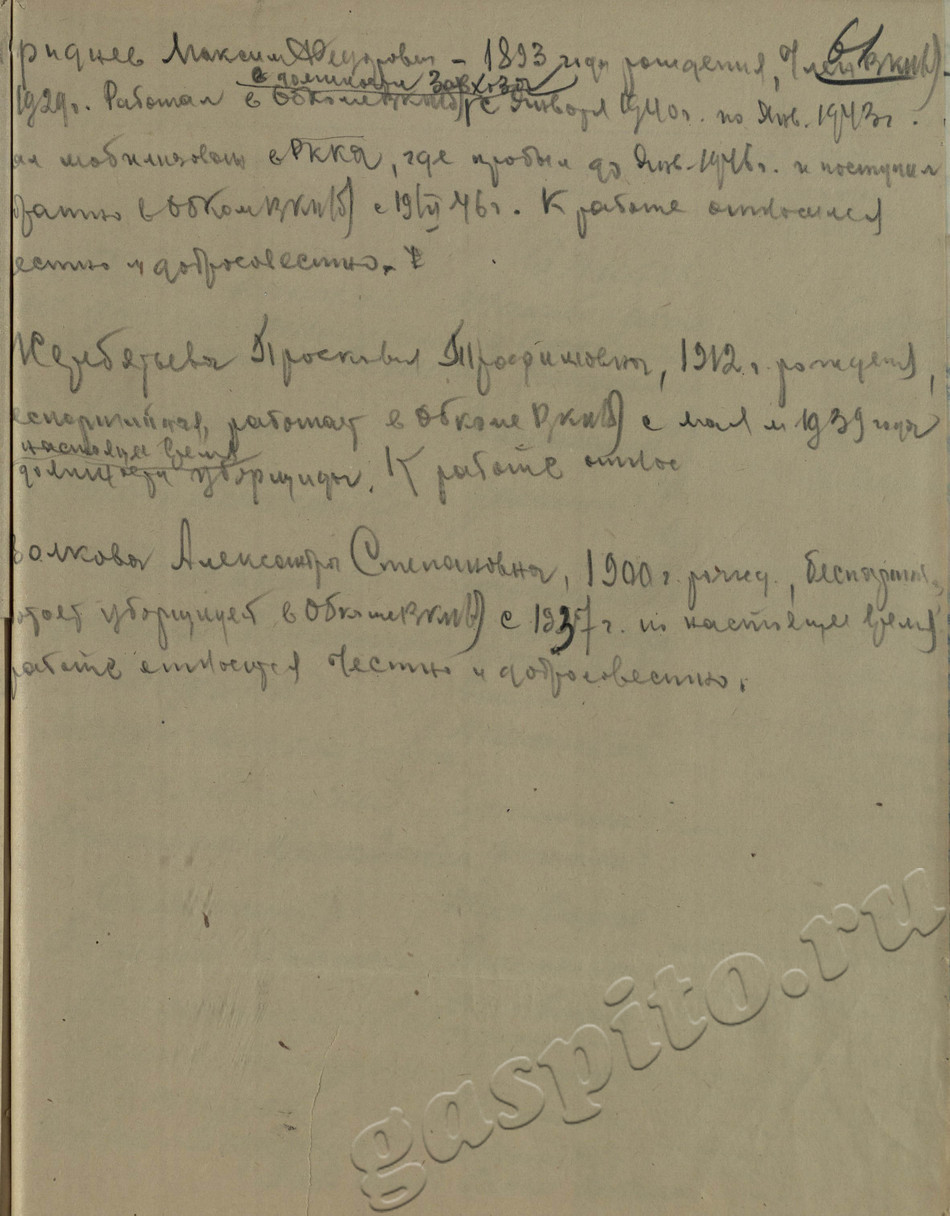 61
риднев Максим Федорович – 1893 года рождения, Член ВКП(б)
в должности завхоза
1929г. Работал в Обкоме ВКП(б) с Января 1940г. по Янв. 1943г.
ыл мобилизован в РККА, где пробыл до Янв. 1946г. и поступил
братно в Обком ВКП(б) с 19/VI 46г. К работе относился
естно и добросовестно.
Жеребятьева Просковья Трофимовна, 1912 г. рождения,
еспартийная, работает в Обкоме ВКП(б) с мая м 1939 года
настоящее время
должности уборщицы. К работе относ
Волкова Александра Степановна, 1900 г. рожд., беспартий
отает уборщицей в Обкоме ВКП(б) с 1937 г. по настоящее время
работе относится честно и добросовестно.
gaspito.ru